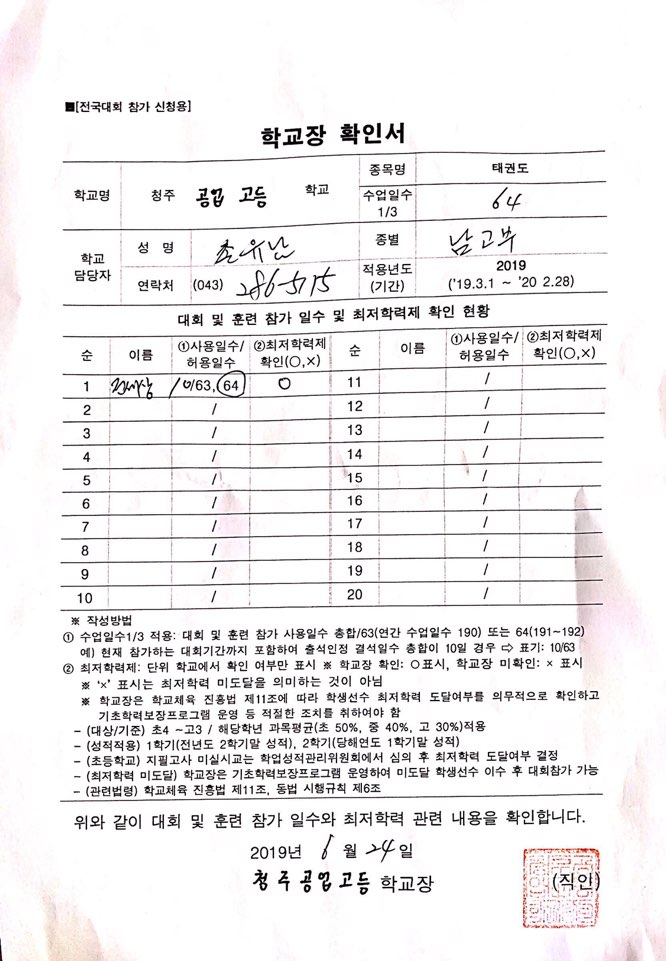 ■[전국대회 참가 신청용]
학교장 확인서
학교명 청주 공업 고등 학교 종목명 태권도
수업일수 1/3 64
학교 담당자 성 명 종별 남고부
연락처 (043) 286-5175 적용년도 (기간) 2019 ('19.3.1 ~ '20 2.28)
대회 및 훈련 참가 일수 및 최저학력제 확인 현황
순 이름 ①사용일수/허용일수 ②최저학력제 확인(○,×) 순 이름 ①사용일수/허용일수 ②최저학력제 확인(○,×)
1 /63, 64 ○ 11 /
2 / 12 /
3 / 13 /
4 / 14 /
5 / 15 /
6 / 16 /
7 / 17 /
8 / 18 /
9 / 19 /
10 / 20 /
※ 작성방법
① 수업일수1/3 적용: 대회 및 훈련 참가 사용일수 총합/63(연간 수업일수 190) 또는 64(191~192)
예) 현재 참가하는 대회기간까지 포함하여 출석인정 결석일수 총합이 10일 경우 ⇨ 표기: 10/63
② 최저학력제: 단위 학교에서 확인 여부만 표시 ※ 학교장 확인: ○표시, 학교장 미확인: × 표시
※ '×' 표시는 최저학력 미도달을 의미하는 것이 아님
※ 학교장은 학교체육 진흥법 제11조에 따라 학생선수 최저학력 도달여부를 의무적으로 확인하고
기초학력보장프로그램 운영 등 적절한 조치를 취하여야 함
- (대상/기준) 초4 ~고3 / 해당학년 과목평균(초 50%, 중 40%, 고 30%)적용
- (성적적용) 1학기(전년도 2학기말 성적), 2학기(당해연도 1학기말 성적)
- (초등학교) 지필고사 미실시교는 학업성적관리위원회에서 심의 후 최저학력 도달여부 결정
- (최저학력 미도달) 학교장은 기초학력보장프로그램 운영하여 미도달 학생선수 이수 후 대회참가 가능
- (관련법령) 학교체육 진흥법 제11조, 동법 시행규칙 제6조
위와 같이 대회 및 훈련 참가 일수와 최저학력 관련 내용을 확인합니다.
2019년 6 월 24 일
청주공업고등 학교장 (직인)